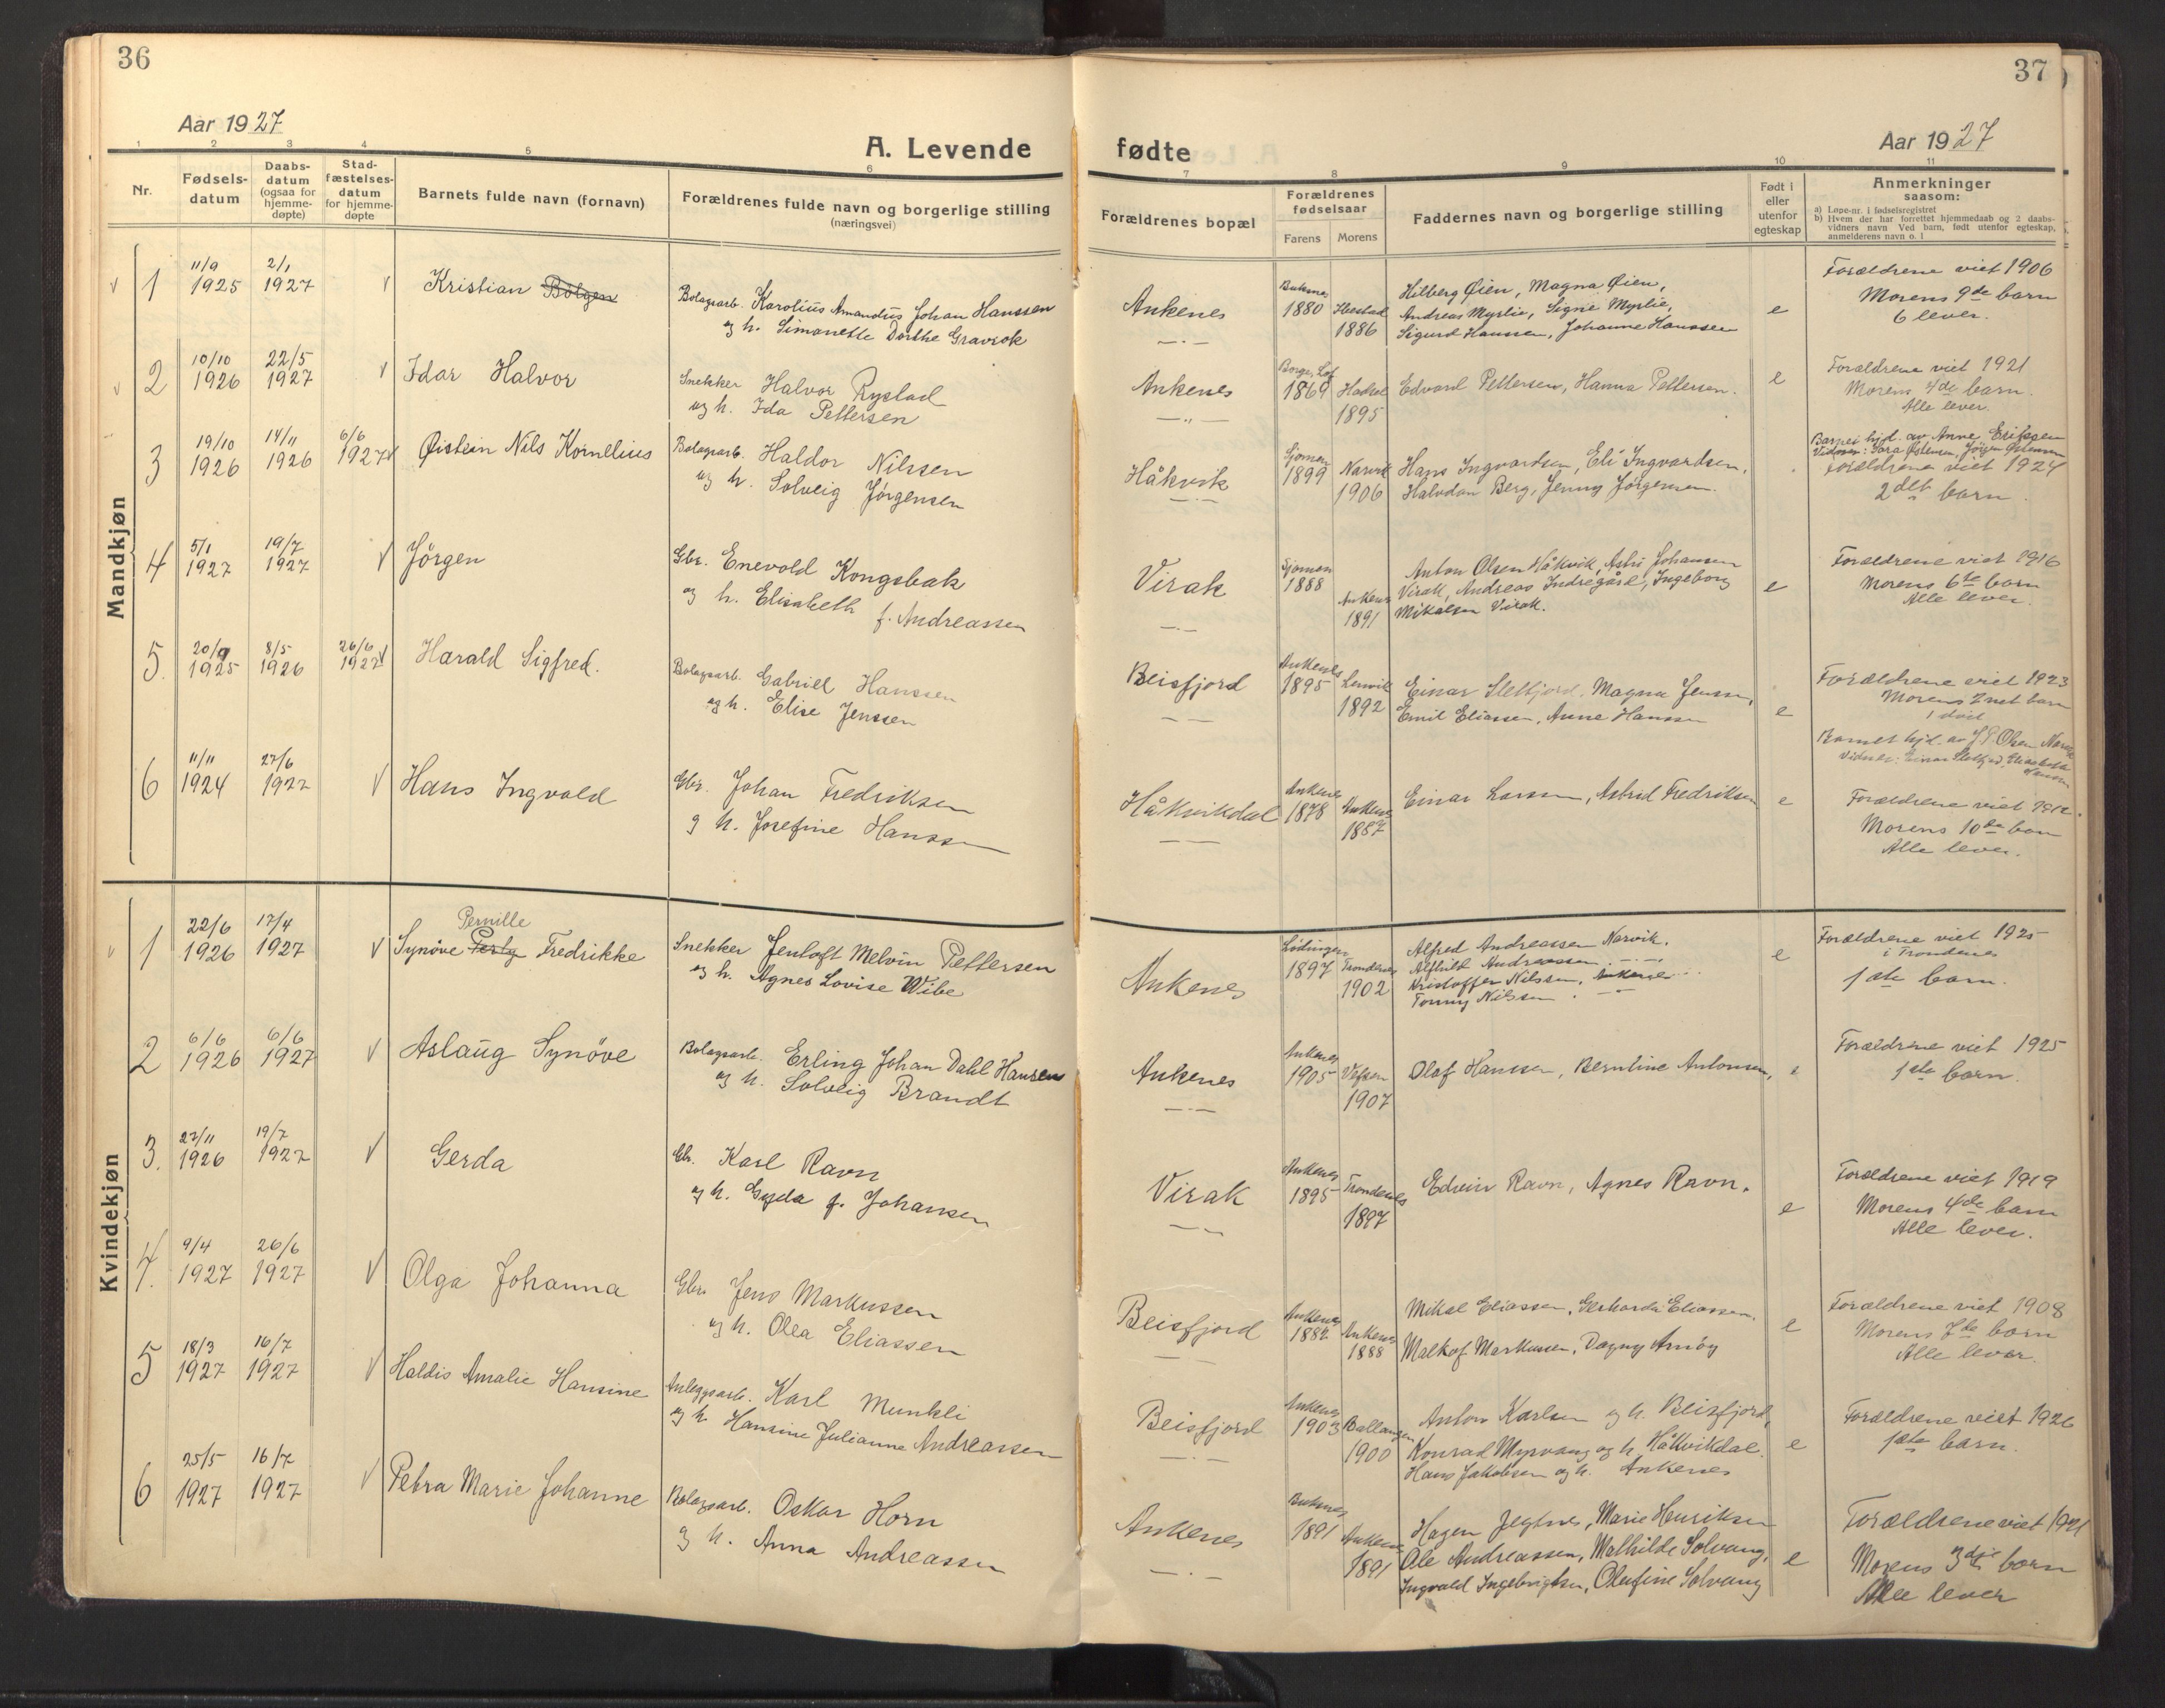 36
Aar 1927
A. Levende
1 2 3 4 5 6
Nr.
Fødsels-
datum
Daabs-
datum
(ogsaa for
hjemme-
døpte)
Stad-
fæstelses-
datum
for hjemme-
døpte
Barnets fulde navn (fornavn)
Forældrenes fulde navn og borgerlige stilling
(næringsvei)
Mandkjøn
1 11/9 1925 2/1 1927 √ Kristian Bolgen
Bolagsarb. Karolius Amandus Johan Hanssen
og h. Simonette Dorthe Gravrok
2 10/10 1926 22/5 1927 √ Idar Halvor
Snekker Halvor Rystad
og h. Ida Pettersen
3 19/10 1926 14/11 1926 6/6 1927 √ Øistein Nils Kornelius
Bolagsarb. Haldor Nilssen
og h. Solveig Jørgensen
4 5/1 1927 19/7 1927 √ Jörgen
Gbr. Enevold Kongsbak
og h. Elisabeth f. Andreassen
5. 20/9 1925 8/5 1926 26/6 1927 √ Harald Sigfred.
Bolagsarb. Gabriel Hanssen
og h. Elise Jenssen
6 11/11 1924 27/6 1927 √ Hans Ingvald
Gbr. Johan Fredriksen
og h. Josefine Hanssen
Kvindekjøn
Pernille
1 22/6 1926 17/4 1927 √ Synöve Fredrikke
Snekker Jentoft Melvin Pettersen
og h. Agnes Lovise Wibe
2 6/6 1926 6/6 1927 √ Aslaug Synöve
Bolagsarb. Erling Johan Dahl Hansen
og h. Solveig Brandt
3. 27/11 1926 19/7 1927 √ Gerda
Gbr. Karl Ravn
og h. Gyda f. Johansen
4. 9/4 1927 26/6 1927 √ Olga Johanna
Gbr. Jens Markussen
og h. Olea Eliassen
5 18/3 1927 16/7 1927 √ Haldis Amalie Hansine
Anleggsarb. Karl Munkli
og h. Hansine Julianne Andreassen
6 25/5 1927 16/7 1927 √ Petra Marie Johanne
Bolagsarb. Oskar Horn
og h. Anna Andreassen
37
fødte
Aar 1927
7 8 9 10 11
Forældrenes bopæl
Forældrenes
fødselsaar
Farens Morens
Faddernes navn og borgerlige stilling
Født i
eller
utenfor
egteskap
Anmerkninger
saasom:
a) Løpe-nr. i fødselsregistret
b) Hvem der har forrettet hjemmedaab og 2 daabs-
vidners navn Ved barn, født utenfor egteskap,
anmelderens navn o. l
Ankenes
Buksnes 1880
Ibestad 1886
Hilberg Øien, Magna Øien,
Andreas Myrlie, Signe Myrlie,
Sigurd Hanssen, Johanne Hanssen
e
Forældrene viet 1906
Morens 9de barn
6 lever.
Ankenes
Borge, Lof 1869
1895
Edvard Pettersen, Hanna Pettersen.
e
Forældrene viet 1921
Morens 4de barn.
Alle lever.
Håkvik
1899
Narvik 1906
Hans Ingvardsen, Eli Ingvardsen,
Halvdan Berg, Jenny Jörgensen.
Barnet hjd. av Anne Eriksen
Vidner: Sara Östensen, Jörgen Östensen
Forældrene viet 1924
2det barn.
Virak
1888
Ankenes 1891
Anton Olsen Håkvik, Astri Johansen
Virak, Andreas Indregård, Ingeborg
Mikalsen Virak.
e
Forældrene viet 1916
Morens 6te barn
Alle lever.
Beisfjord
Ankenes 1895
Lenvik 1892
Einar Sletfjord, Magna Jensen,
Emil Eliassen, Anne Hanssen
e
Forældrene viet 1923
Morens 2net barn
1 död
Barnet hjd. av Olsen Narvik
Vidner: Einar Sletfjord, Elisabeth
Hansen
Håkvikdal
Ankenes 1878
Ankenes 1887
Einar Larsen, Astrid Fredriksen
e
Forældrene viet 1912.
Morens 10de barn
Alle lever.
Ankenes
Lödingen 1897
Trondenes 1902
Alfred Andreassen Narvik.
Alfhild Andreassen
Kristoffer Nilssen, Ankenes
Tonny Nilssen
e
Forældrene viet 1925
i Trondenes
1ste barn.
Ankenes
Ankenes 1905
Vefsen 1907
Olaf Hanssen, Berntine Antonsen,
e
Forældrene viet 1925
1ste barn.
Virak
Ankenes 1895
Trondenes 1897
Edvin Ravn, Agnes Ravn.
e
Forældrene viet 1919
Morens 4de barn
Alle lever.
Beisfjord
Ankenes 1882
Ankenes 1888
Mikal Eliassen, Gerharda Eliassen.
Malkof Markussen, Dagny Arnöy
e
Forældrene viet 1908
Morens 7de barn
Alle lever.
Beisfjord
Ankenes 1903
Ballangen 1900
Anton Karlsen og h. Beisfjord,
Konrad Myrvang og h. Håkvikdal.
Hans Jakobsen og h. Ankenes
e
Forældrene viet 1926
1ste barn.
Ankenes
Buksnes 1891
Ankenes 1891
Hagen Jegtnes, Marie Henriksen
Ole Andreassen, Mathilde Solvang,
Ingvald Ingebrigtsen, Olufine Solvang
e
Forældrene viet 1921
Morens 3dje barn
Alle lever